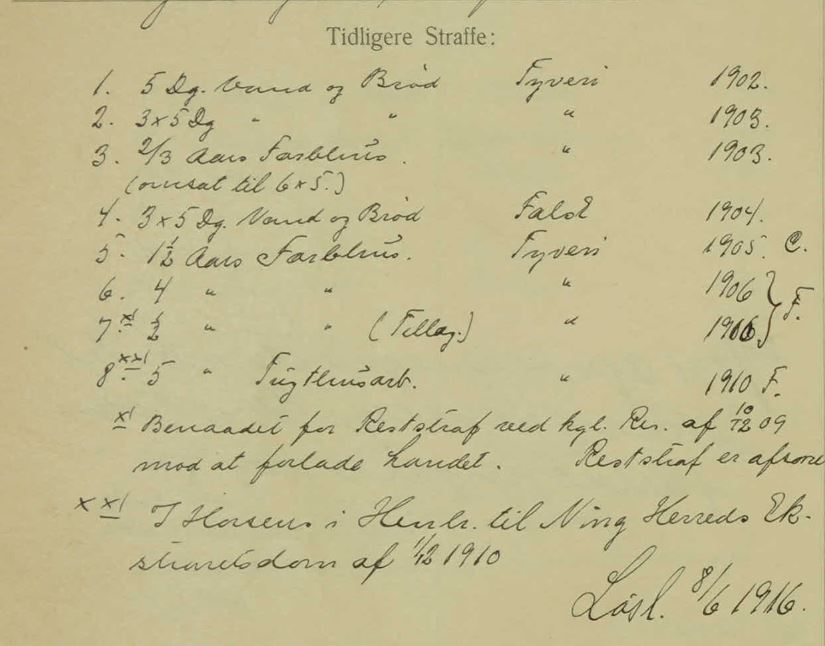 Tidligere Straffe:
1. 5 Dg. Vand og Brød Tyveri 1902.
2. 3x5 Dg " " " 1903.
3. 2/3 Aars Forbhus. " 1903.
(omsat til 6x5.)
4. 3x5 Dg. Vand og Brød Falsk 1904.
5. 1 1/2 Aars Forbhus. Tyveri 1905. C.
6. 4 " " " 1906 } F.
7. x) 1/2 " " (Tillæg.) " 1906
8 xx) 5 " Tugthusarb. " 1910 F.
x) Benaadet for Reststraf ved kgl. Res. af 10/12 09
mod at forlade Landet. Reststraf er afsone
xx) I Horsens i Henh. til Ning Herreds Ek-
straretsdom af 1/12 1910
Løsl. 8/6 1916.